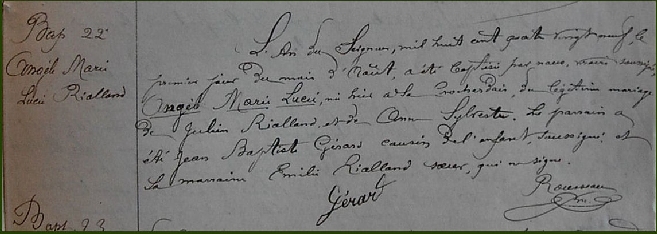 Bap 22e
Angèle Marie
Lucie Rialland
L'An du Seigneur, mil huit cent quatre vingt neuf, le
premier jour du mois d'Août, a été baptisée par nous, vicaire soussigné,
Angèle Marie Lucie, née hier à la du légitime mariage
de Julien Rialland, et de Anne Sylvestre. Le parrain a
été Jean Baptiste Gérard cousin de l'enfant, soussigné et
la marraine Emilie Rialland sœur, qui ne signe.
Gérard
Rousseau
Bapt. 23